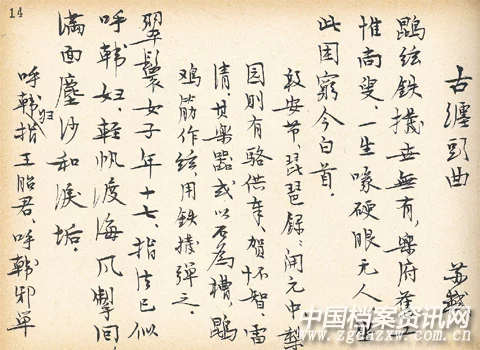 14
古纏頭曲 苏轼
鹍絃铁撥世無有，樂府舊工
惟尚叟。一生喙硬眼无人，坐
此困窮今白首。
段安节，琵琶録：開元中梨
园则有駱供奉、賀怀智、雷
清其樂器或以石為槽，鵾
鸡筋作絃用鉄撥弹之。
翠鬟女子年十七，指法已似
呼韓妇。輕帆渡海风掣回，
滿面塵沙和淚垢。
呼韓妇指王昭君，呼韓邪單
中国档案资讯网
www.zgdazxw.com.cn